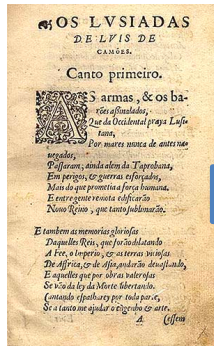 OS LVSIADAS
DE LVIS DE
CAMÕES.
Canto primeiro.
AS armas, & os ba-
rões assinalados,
Que da Occidental praya Lusi-
tana,
Por mares nunca de antes na-
uegados,
Passaram, ainda alem da Taprobana,
Em perigos, & guerras esforçados,
Mais do que prometia a força humana.
E entre gente remota edificarão
Nouo Reino, que tanto sublimarão.
E tambem as memorias gloriosas
Daquelles Reis, que forão dilatando
A Fee, o Imperio, & as terras viciosas
De Affrica, & de Asia, andarão deuastando,
E aquelles que por obras valerosas
Se vão da ley da Morte libertando.
Cantando espalharey por toda parte,
Se a tanto me ajudar o engenho & arte.
A
Cessem